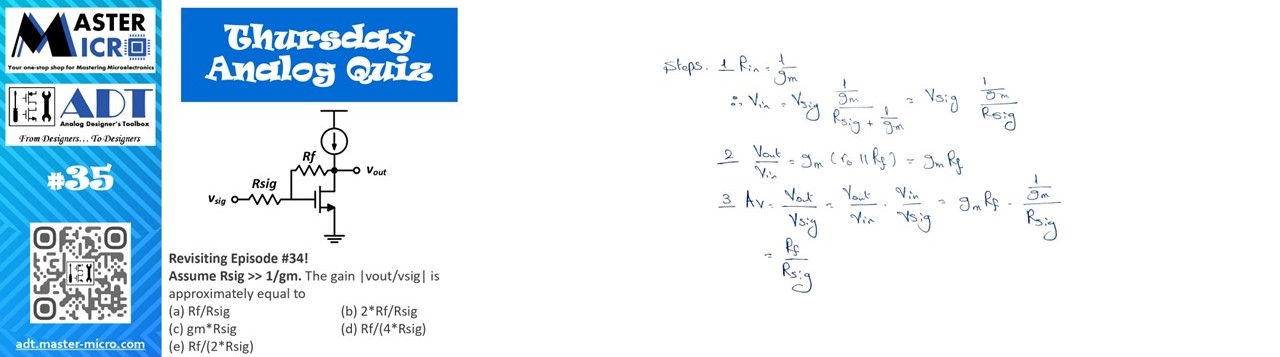 MASTER
MICRO
Your one-stop shop for Mastering Microelectronics
ADT
Analog Designer's Toolbox
From Designers... To Designers
#35
adt.master-micro.com
Thursday
Analog Quiz
Rf
Vout
Rsig
Vsig
Revisiting Episode #34!
Assume Rsig >> 1/gm. The gain |vout/vsig| is
approximately equal to
(a) Rf/Rsig (b) 2*Rf/Rsig
(c) gm*Rsig (d) Rf/(4*Rsig)
(e) Rf/(2*Rsig)
Steps. 1 Rin = 1/gm
∴ Vin = Vsig (1/gm)/(Rsig + 1/gm) = Vsig (1/gm)/Rsig
2 Vout/Vin = gm (ro || Rf) = gm Rf
3 Av = Vout/Vsig = Vout/Vin . Vin/Vsig = gm Rf . (1/gm)/Rsig
= Rf/Rsig